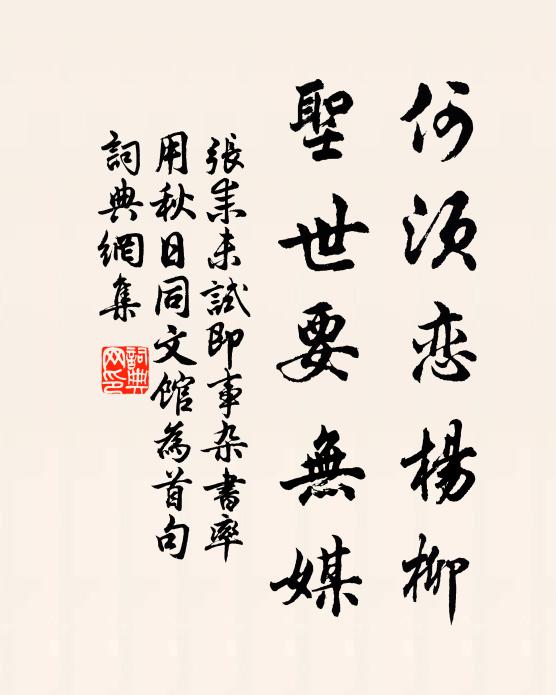 何须恋楊柳
聖世要無媒
張耒未試即事杂書率
用秋日同文馆為首句
詞典網集
詞典
网印